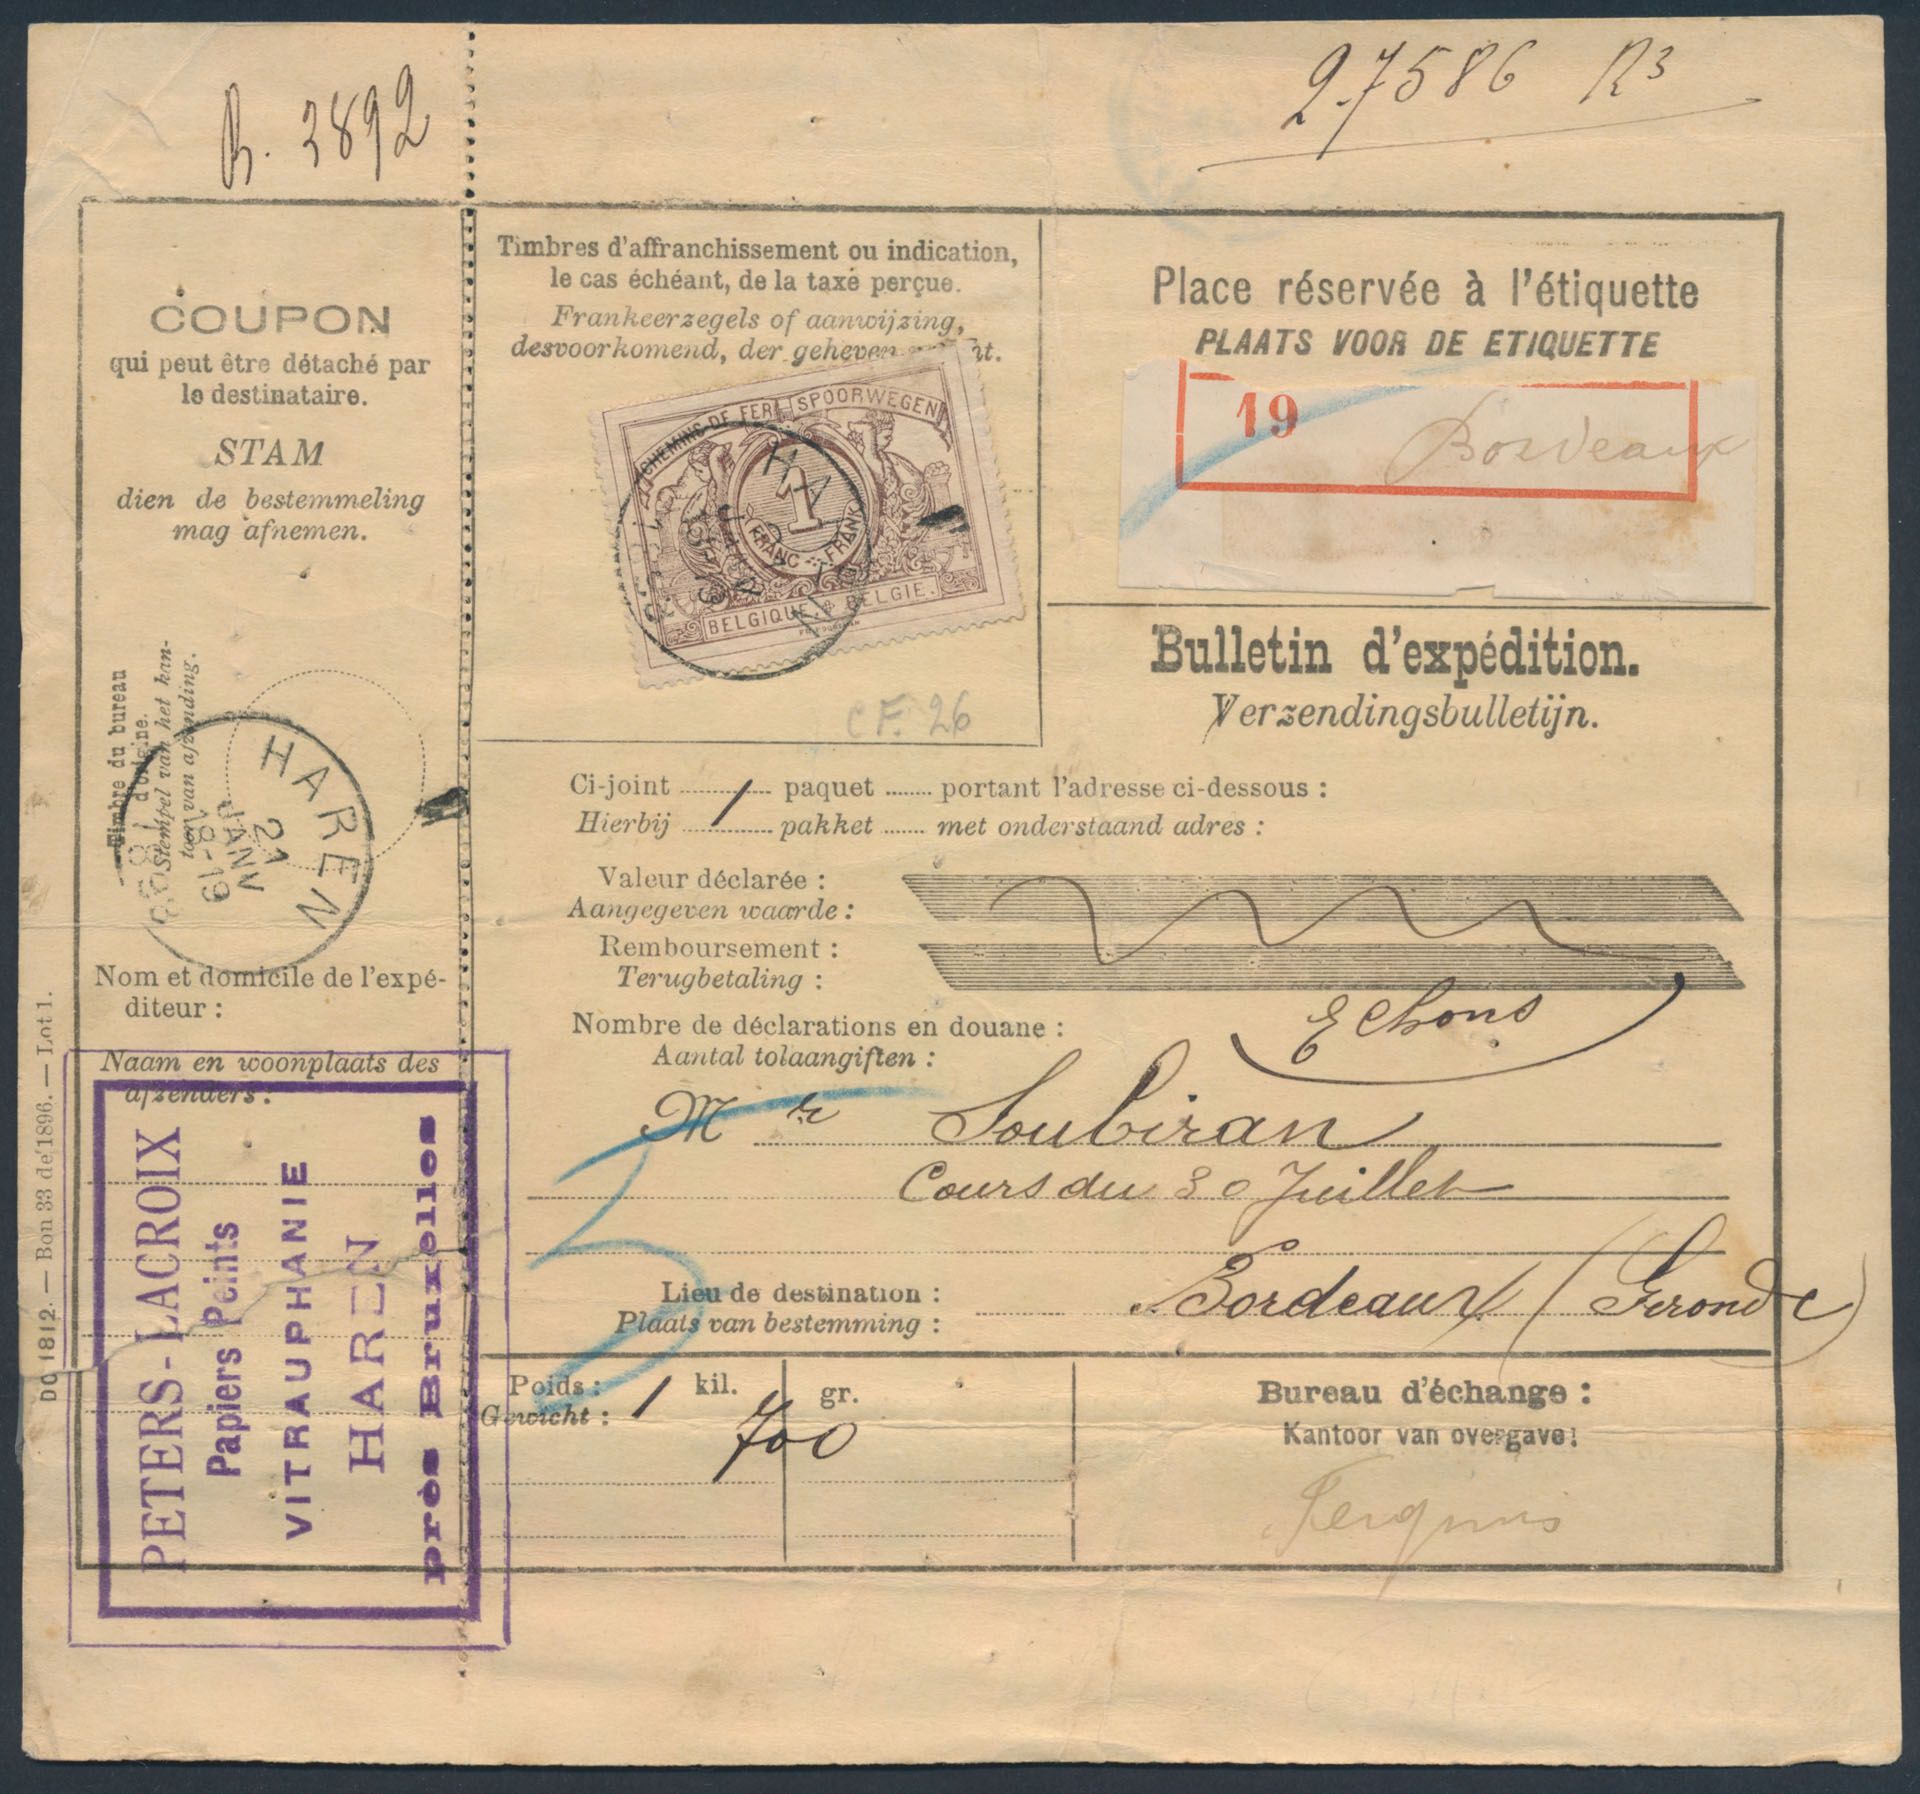 R. 3892
27586 R3
COUPON
qui peut être détaché par
le destinataire.
STAM
dien de bestemmeling
mag afnemen.
Timbre du bureau
d'origine.
Stempel van het kan-
toor van afzending.
HAREN
21
JANV
18-19
Nom et domicile de l'expé-
diteur :
Naam en woonplaats des
afzenders :
PETERS-LACROIX
Papiers Peints
VITRAUPHANIE
HAREN
près Bruxelles
DC 1812. — Bon 33 de 1896. — Lot 1.
Timbres d'affranchissement ou indication,
le cas échéant, de la taxe perçue.
Frankeerzegels of aanwijzing,
desvoorkomend, der geheven
CHEMINS DE FER SPOORWEGEN
1
FRANC FRANK
BELGIQUE. BELGIE.
CF. 26
Place réservée à l'étiquette
PLAATS VOOR DE ETIQUETTE
19 Bordeaux
Bulletin d'expédition.
Verzendingsbulletijn.
Ci-joint 1 paquet portant l'adresse ci-dessous :
Hierbij pakket met onderstaand adres :
Valeur déclarée :
Aangegeven waarde :
Remboursement :
Terugbetaling :
Nombre de déclarations en douane : Echons
Aantal tolaangiften :
Mr Soubiran
Cours du 30 Juillet
Lieu de destination : Bordeaux (Gironde)
Plaats van bestemming :
Poids : 1 kil. 700 gr.
Gewicht :
Bureau d'échange :
Kantoor van overgave :